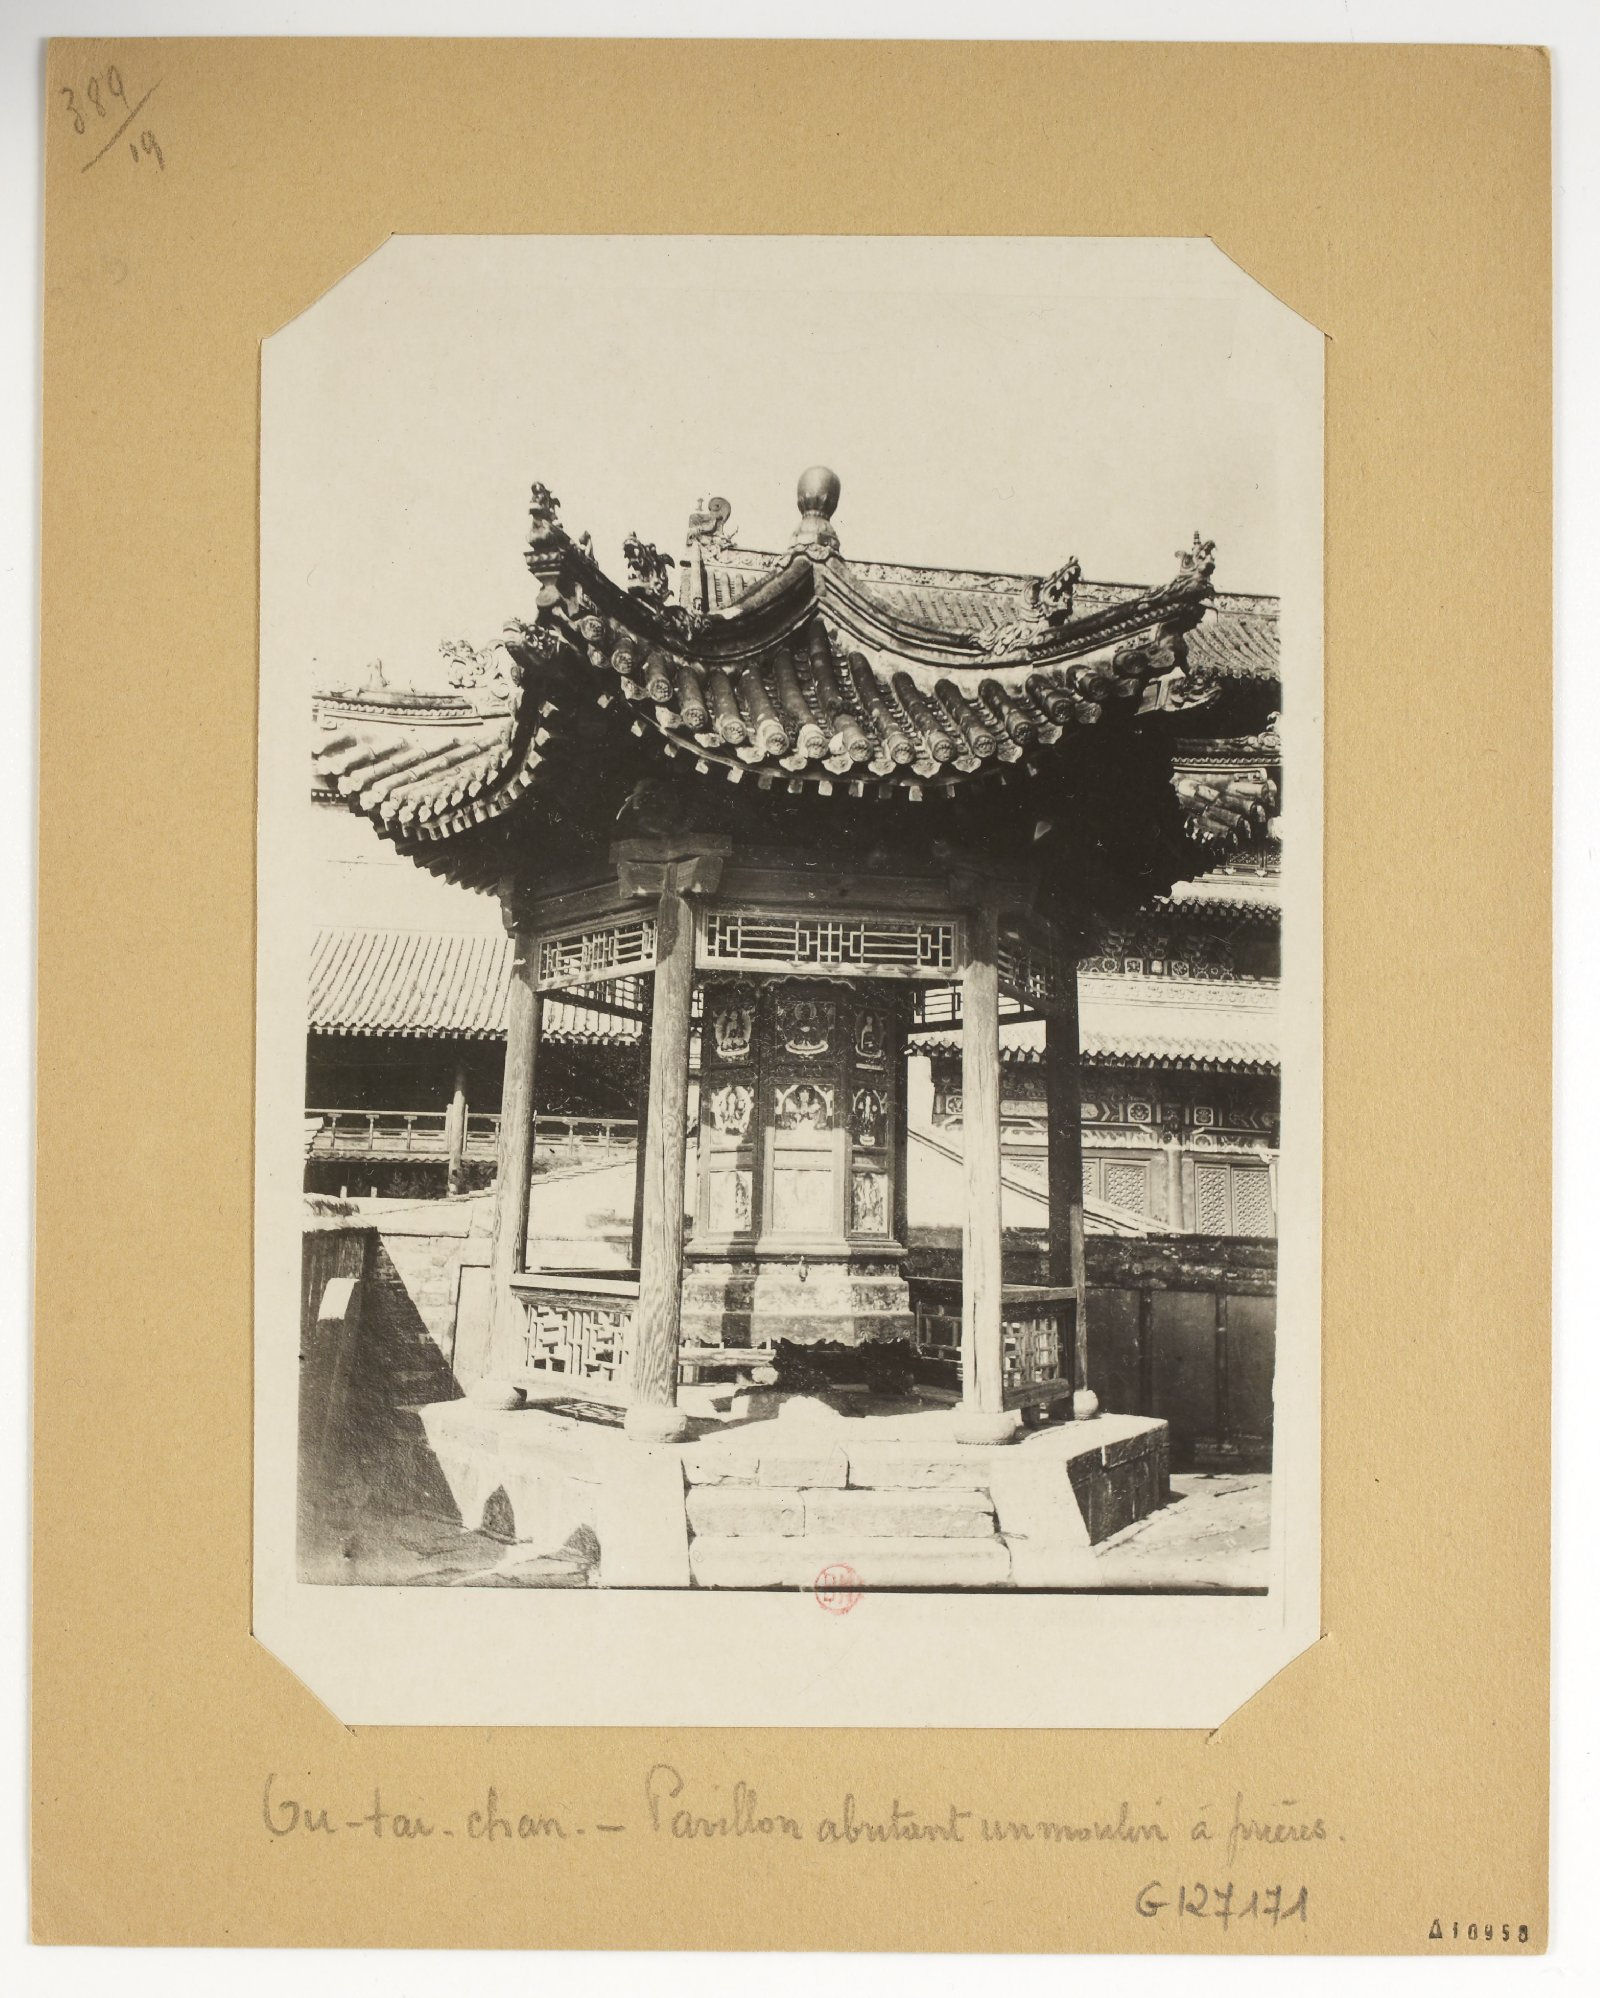 389
19
Ou-tai-chan. — Pavillon abritant un moulin à prières.
G 127171
A10958